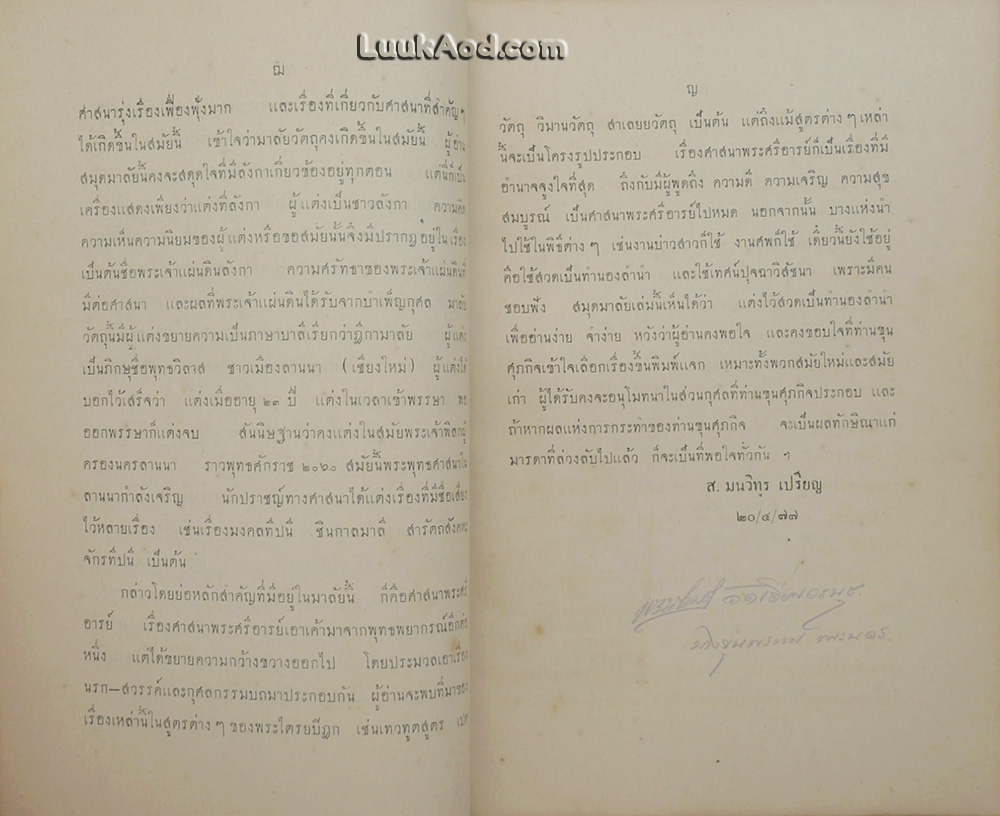 LuukAod.com
ฌ
ศาสนารุ่งเรืองเฟื่องฟุ้งมาก และเรื่องที่เกี่ยวกับศาสนาที่สำคัญๆ
ได้เกิดขึ้นในสมัยนี้ เข้าใจว่ามาลัยวัตถุคงเกิดขึ้นในสมัยนี้ ผู้อ่าน
สมุดมาลัยนี้คงจะสดุดใจที่มีลังกาเกี่ยวข้องอยู่ทุกตอน แต่นี่ก็เป็น
เครื่องแสดงเพียงว่าแต่งที่ลังกา ผู้แต่งเป็นชาวลังกา ความคิด
ความเห็นความนิยมของผู้แต่งหรือของสมัยนั้นจึงมีปรากฏอยู่ในเรื่อง
เป็นต้นชื่อพระเจ้าแผ่นดินลังกา ความศรัทธาของพระเจ้าแผ่นดินที่
มีต่อศาสนา และผลที่พระเจ้าแผ่นดินได้รับจากบำเพ็ญกุศล มาลัย
วัตถุนี้มีผู้แต่งขยายความเป็นภาษาบาลีเรียกว่าฎีกามาลัย ผู้แต่ง
เป็นภิกษุชื่อพุทธวิลาส ชาวเมืองลานนา (เชียงใหม่) ผู้แต่งได้
บอกไว้เสร็จว่า แต่งเมื่ออายุ ๒๓ ปี แต่งในเวลาเข้าพรรษา พอ
ออกพรรษาก็แต่งจบ สันนิษฐานว่าคงแต่งในสมัยพระเจ้าพิลกผู้
ครองนครลานนา ราวพุทธศักราช ๒๐๖๐ สมัยนั้นพระพุทธศาสนาใน
ลานนากำลังเจริญ นักปราชญ์ทางศาสนาได้แต่งเรื่องที่มีชื่อเสียง
ไว้หลายเรื่อง เช่นเรื่องมงคลทีปนี ชินกาลมาลี สารัตถสังคหะ
จักรทีปนี เป็นต้น
กล่าวโดยย่อหลักสำคัญที่มีอยู่ในมาลัยนี้ ก็คือศาสนาพระศรี
อารย์ เรื่องศาสนาพระศรีอารย์เอาเค้ามาจากพุทธพยากรณ์อีกต่อ
หนึ่ง แต่ได้ขยายความกว้างขวางออกไป โดยประมวลเอาเรื่อง
นรก—สวรรค์และกุศลกรรมบถมาประกอบกัน ผู้อ่านจะพบที่มาของ
เรื่องเหล่านี้ในสูตรต่างๆ ของพระไตรยปีฎก เช่นเทวทูตสูตร เปต
ญ
วัตถุ วิมานวัตถุ สาเลยยวัตถุ เป็นต้น แต่ถึงแม้สูตรต่างๆ เหล่า
นี้จะเป็นโครงรูปประกอบ เรื่องศาสนาพระศรีอารย์ก็เป็นเรื่องที่มี
อำนาจจูงใจที่สุด ถึงกับมีผู้พูดถึง ความดี ความเจริญ ความสุข
สมบูรณ์ เป็นศาสนาพระศรีอารย์ไปหมด นอกจากนั้น บางแห่งนำ
ไปใช้ในพิธีต่างๆ เช่นงานบ่าวสาวก็ใช้ งานศพก็ใช้ เดี๋ยวนี้ยังใช้อยู่
คือใช้สวดเป็นทำนองลำนำ และใช้เทศน์ปุจฉาวิสัชนา เพราะมีคน
ชอบฟัง สมุดมาลัยเล่มนี้เห็นได้ว่า แต่งไว้สวดเป็นทำนองลำนำ
เพื่ออ่านง่าย จำง่าย หวังว่าผู้อ่านคงพอใจ และคงขอบใจที่ท่านขุน
ศุภกิจเข้าใจเลือกเรื่องขึ้นพิมพ์แจก เหมาะทั้งพวกสมัยใหม่และสมัย
เก่า ผู้ได้รับคงจะอนุโมทนาในส่วนกุศลที่ท่านขุนศุภกิจประกอบ และ
ถ้าหากผลแห่งการกระทำของท่านขุนศุภกิจ จะเป็นผลทักษิณาแก่
มารดาที่ล่วงลับไปแล้ว ก็จะเป็นที่พอใจทั่วกัน ฯ
ส. มนวิทูร เปรียญ
๒๐/๔/๗๗